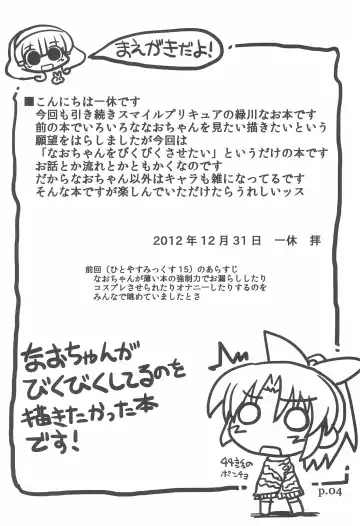 まえがきだよ!
■こんにちは一休です
今回も引き続きスマイルプリキュアの緑川なお本です
前の本でいろいろななおちゃんを見たい描きたいという
願望をはらしましたが今回は
「なおちゃんをびくびくさせたい」というだけの本です
お話とか流れとかともかくなのです
だからなおちゃん以外はキャラも雑になってるです
そんな本ですが楽しんでいただけたらうれしいッス
2012年12月31日　一休　拝
前回（ひとやすみっくす15）のあらすじ
なおちゃんが薄い本の強制力でお漏らししたり
コスプレさせられたりオナニーしたりするのを
みんなで眺めていましたとさ
なおちゃんが
びくびくしてるのを
描きたかった本
です!
ポンチョ
p.04